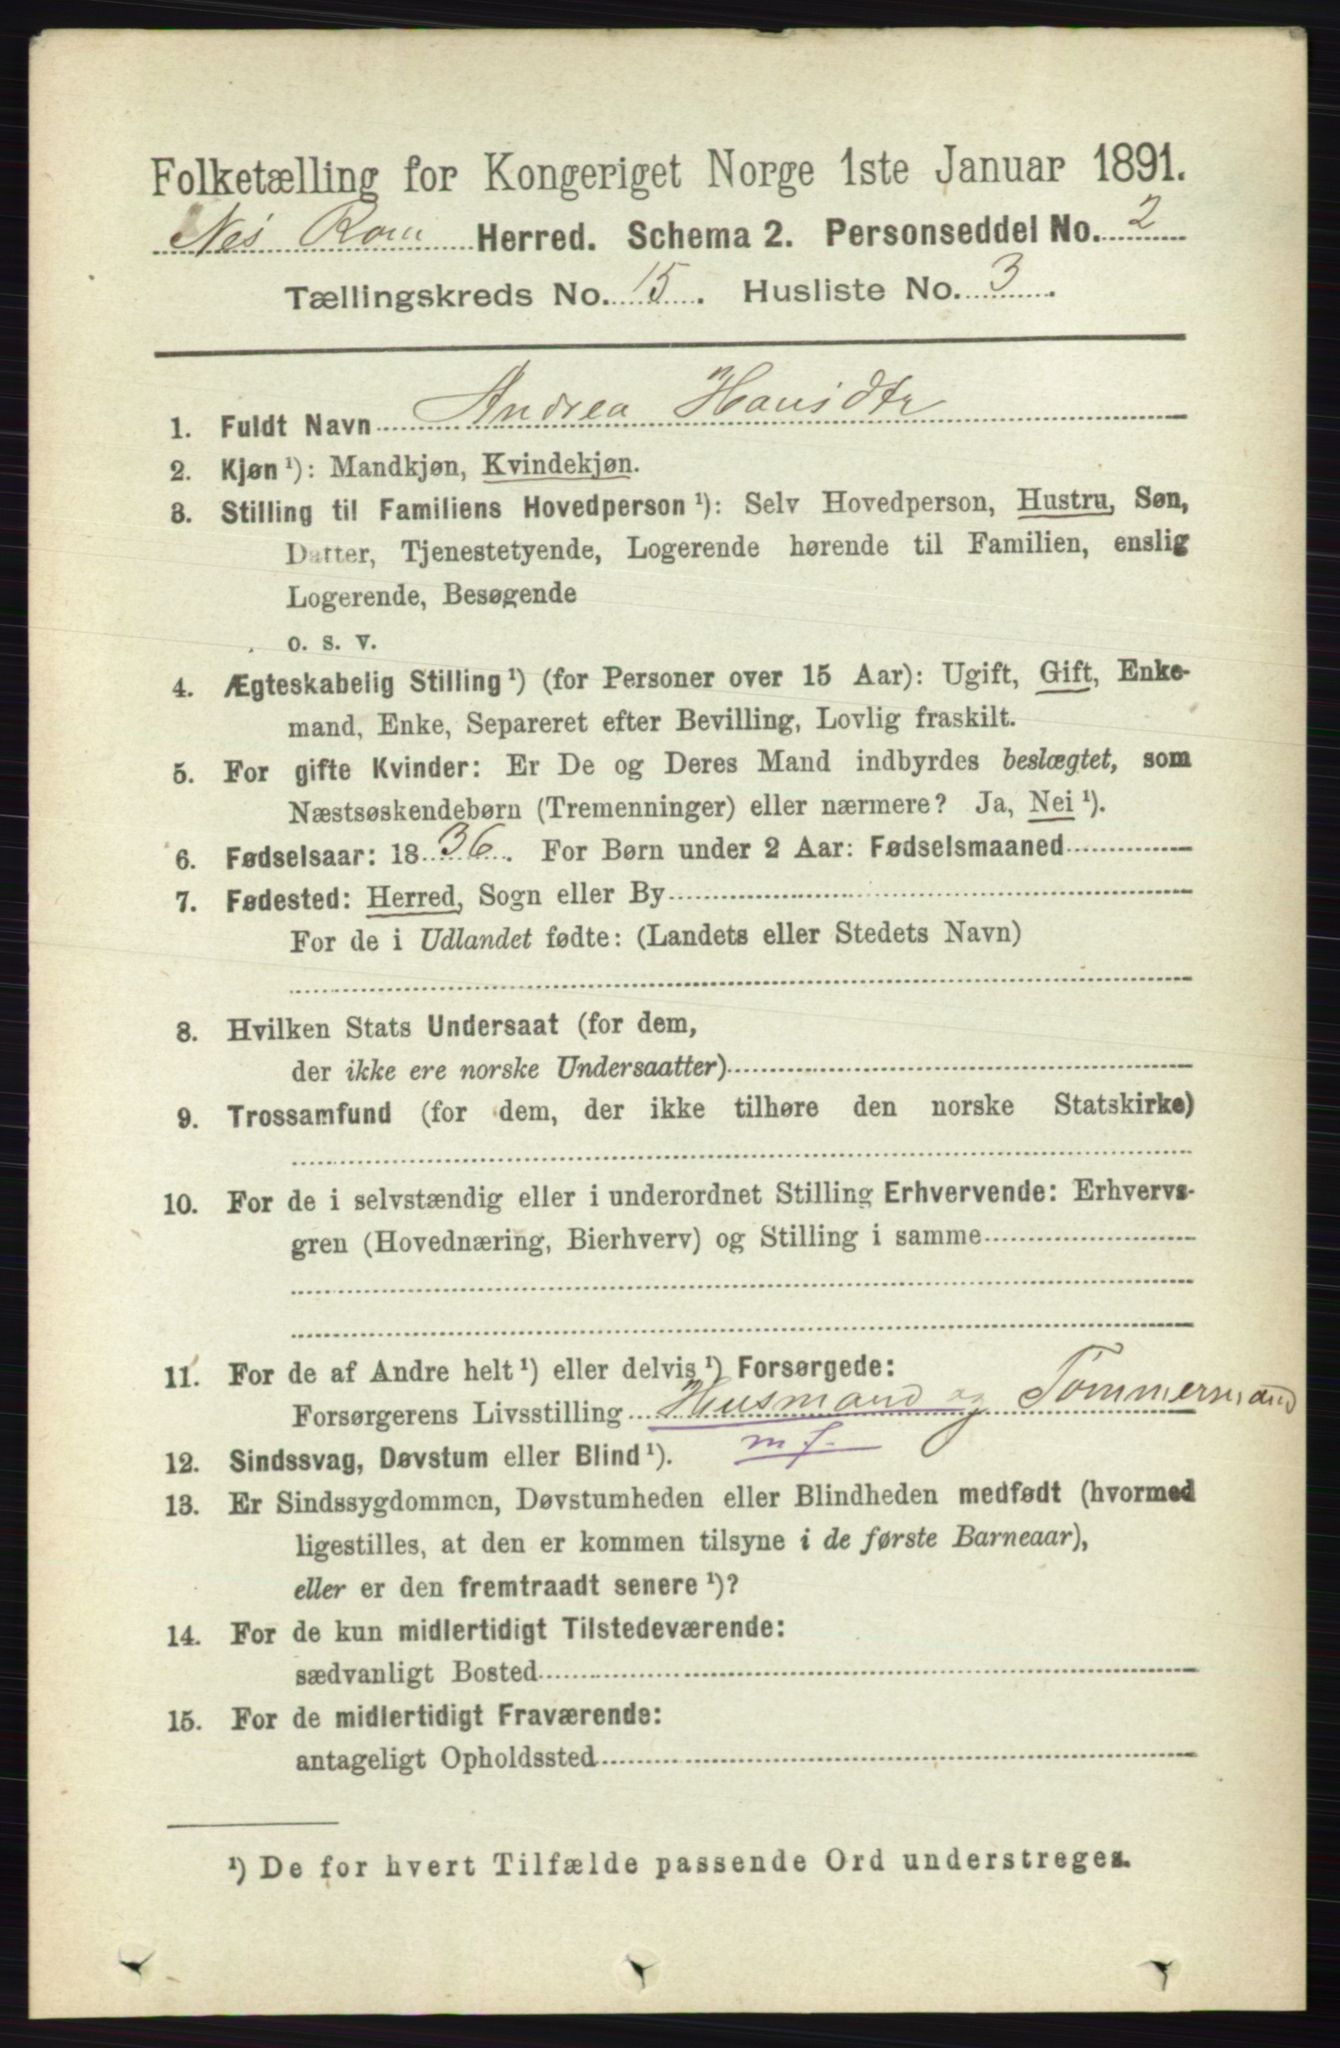 Folketælling for Kongeriget Norge 1ste Januar 1891.
Nes Rom Herred. Schema 2. Personseddel No. 2
Tællingskreds No. 15. Husliste No. 3.
1. Fuldt Navn Andrea Hansdtr
2. Kjøn ¹): Mandkjøn, Kvindekjøn.
3. Stilling til Familiens Hovedperson ¹): Selv Hovedperson, Hustru, Søn,
Datter, Tjenestetyende, Logerende hørende til Familien, enslig
Logerende, Besøgende
o. s. v.
4. Ægteskabelig Stilling ¹) (for Personer over 15 Aar): Ugift, Gift, Enke-
mand, Enke, Separeret efter Bevilling, Lovlig fraskilt.
5. For gifte Kvinder: Er De og Deres Mand indbyrdes beslægtet, som
Næstsøskendebørn (Tremenninger) eller nærmere? Ja, Nei ¹).
6. Fødselsaar: 1836. For Børn under 2 Aar: Fødselsmaaned
7. Fødested: Herred, Sogn eller By
For de i Udlandet fødte: (Landets eller Stedets Navn)
8. Hvilken Stats Undersaat (for dem,
der ikke ere norske Undersaatter)
9. Trossamfund (for dem, der ikke tilhøre den norske Statskirke)
10. For de i selvstændig eller i underordnet Stilling Erhvervende: Erhvervs-
gren (Hovednæring, Bierhverv) og Stilling i samme
11. For de af Andre helt ¹) eller delvis ¹) Forsørgede:
Forsørgerens Livsstilling Husmand og Tømmermand
m f.
12. Sindssvag, Døvstum eller Blind ¹).
13. Er Sindssygdommen, Døvstumheden eller Blindheden medfødt (hvormed
ligestilles, at den er kommen tilsyne i de første Barneaar),
eller er den fremtraadt senere ¹)?
14. For de kun midlertidigt Tilstedeværende:
sædvanligt Bosted
15. For de midlertidigt Fraværende:
antageligt Opholdssted
¹) De for hvert Tilfælde passende Ord understreges.